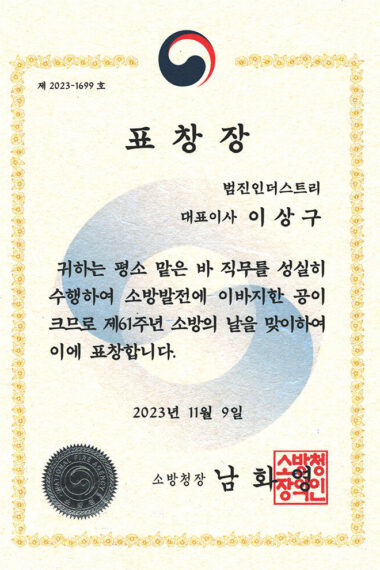 제 2023-1699 호
표 창 장
범진인더스트리
대표이사 이 상 구
귀하는 평소 맡은 바 직무를 성실히
수행하여 소방발전에 이바지한 공이
크므로 제61주년 소방의 날을 맞이하여
이에 표창합니다.
2023년 11월 9일
소방청장 남 화 영
소방청
장의인